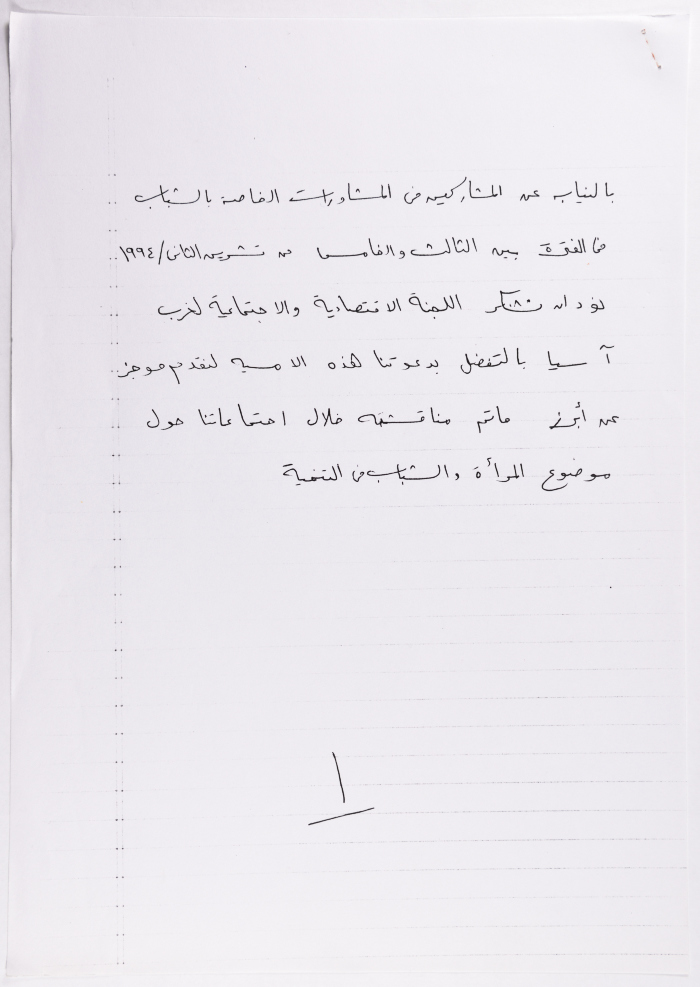 بالنياب عن المشاركين في المشاورات الخاصة بالشباب
في الفترة بين الثالث والخامس من تشرين الثاني/١٩٩٤
نود ان نشكر اللجنة الاقتصادية والاجتماعية لغرب
آسيا بالتفضل بدعوتنا هذه الامسيه لنقدم موجز
عن أبرز ماتم مناقشته خلال اجتماعاتنا حول
موضوع المرأة والشباب في التنمية
١